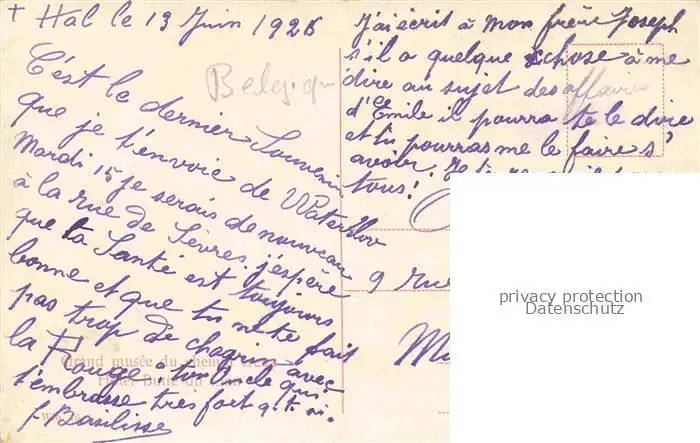 + Hal le 13 Juin 1926
C'est le dernier Souvenir
que je t'envoie de Waterloo
Mardi 15 je serais de nouveau
à la rue de Sèvres. j'espère
que ta Santé est toujours
bonne et que tu ne te fait
pas trop de chagrin avec
la Rouge, ton Oncle qui
t'embrasse tres fort q. t. ai.
f. Basilisse
Belgique
J'ai écrit à Mon frère Joseph
s'il a quelque chose à me
dire au sujet des affaires
d'Emile il pourra te le dire
et tu pourras me le faire s
avoir.
tous!
9 rue
Grand musée du
Hôtel Butte du Lion
privacy protection
Datenschutz